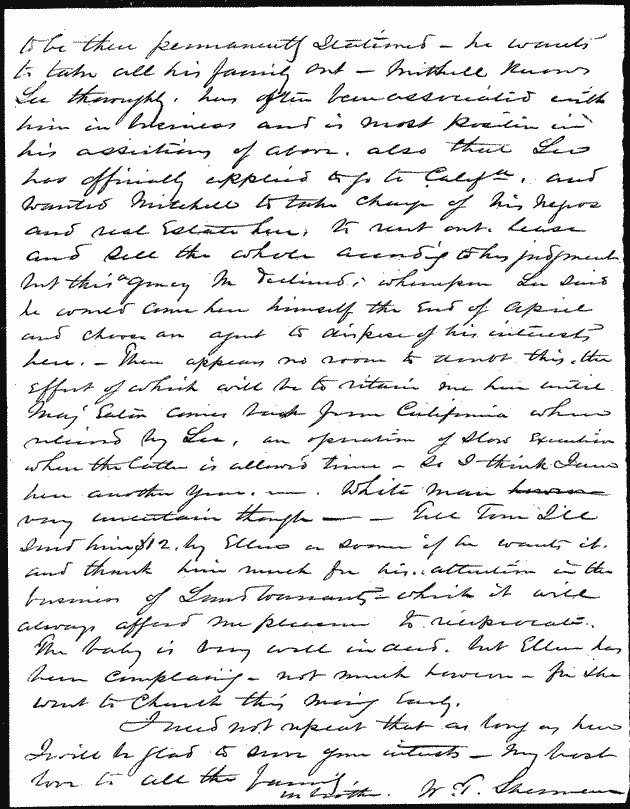 to be then permanently stationed – he wants
to take all his family out – Mitchell knows
Lee thoroughly. has often been associated with
him in business and is most positive in
his assertions of above. also that Lee
has officially applied to go to Califa. and
wanted Mitchell to take charge of his negros
and real Estate here. to rent out. lease
and sell the whole according to his judgment
but this agency M declined; whereupon Lee said
he would come here himself the End of April
and choose an agent to dispose of his interests
here. – There appears no room to doubt this. the
Effect of which will be to retain me here until
Maj Eaton comes back from California when
relieved by Lee, an operation of slow Execution
when the latter is allowed time – So I think I am
here another year. —. White man
very uncertain though — – Tell Tom I'll
send him $12. by Ellen or sooner if he wants it.
and thank him much for his attention in the
business of Land Warrants – which it will
always afford me pleasure to reciprocate.
The baby is very well indeed. but Ellen has
been complaining – not much however – for she
went to Church this mornig Early.
I need not repeat that as long as here
I will be glad to serve your interests – My best
love to all the family
W. T. Sherman